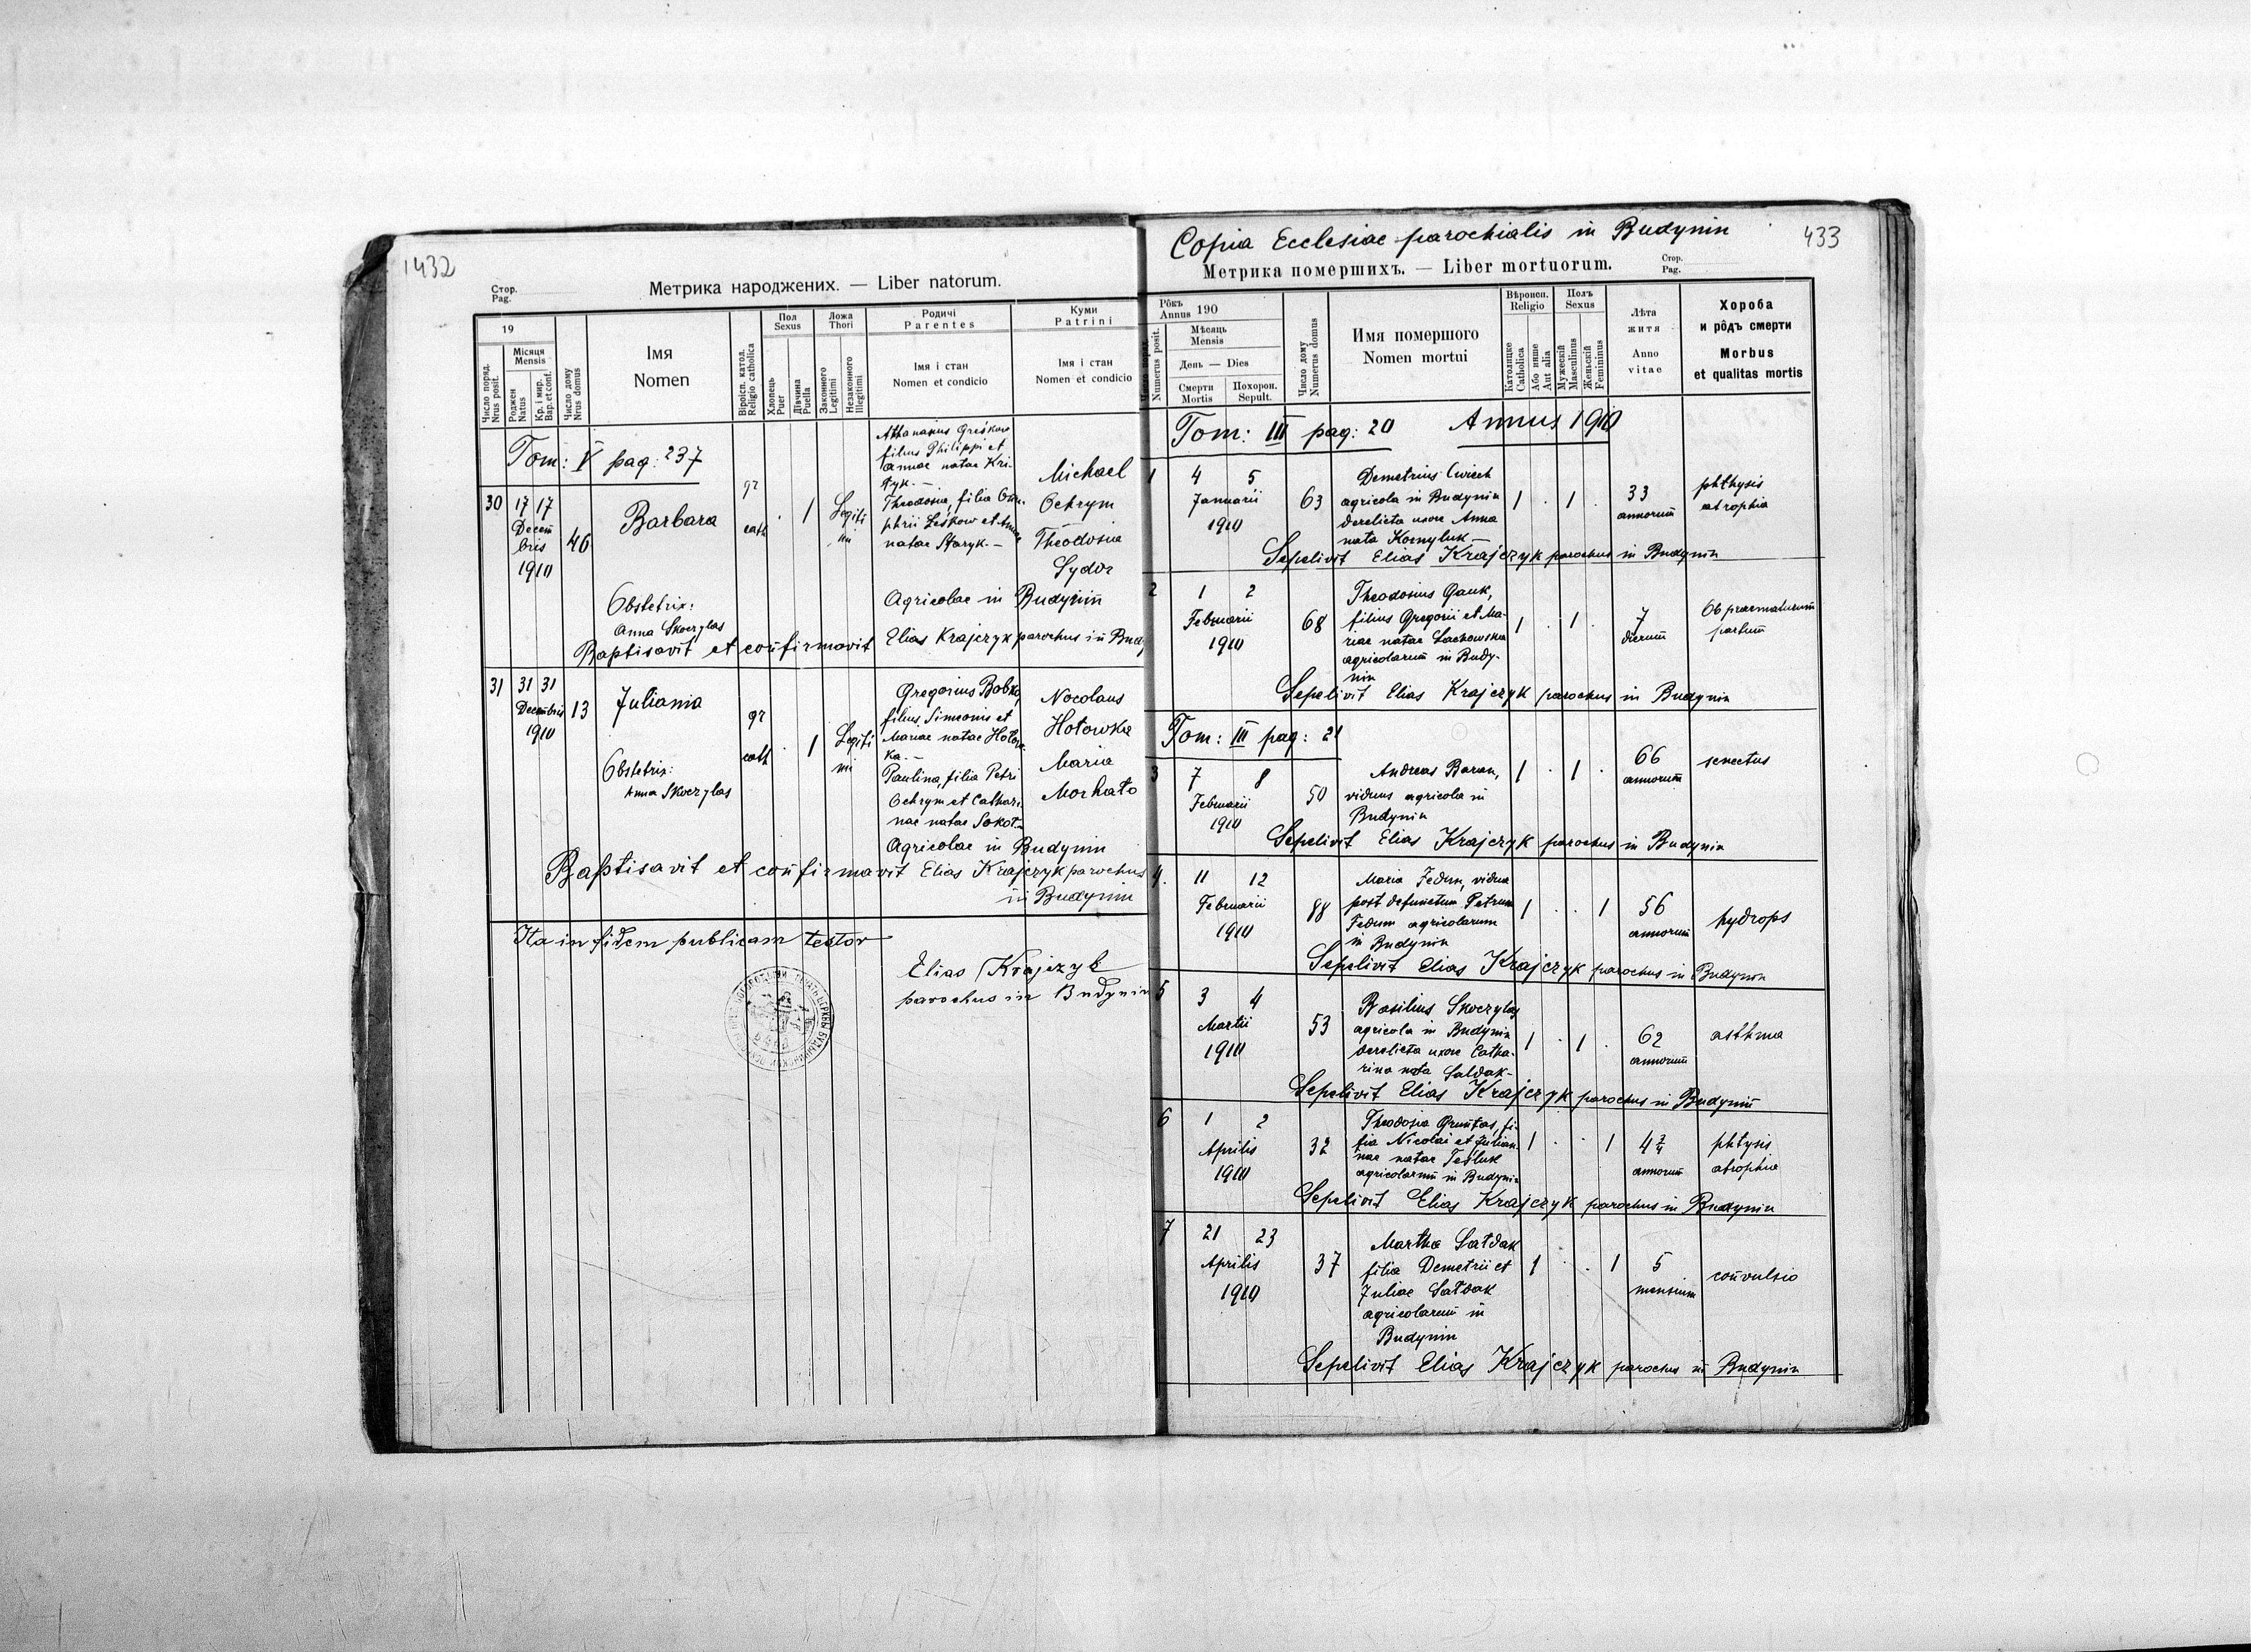 1432
Стор.
Pag.
Метрика народжених. — Liber natorum.
19
Число поряд.
Nrus posit.
Місяця
Mensis
Роджен
Natus
Кр. і мир.
Bap. et conf.
Число дому
Nrus domus
Імя
Nomen
Віроісп. катол.
Religio catholica
Пол
Sexus
Хлопець
Puer
Дівчина
Puella
Ложа
Thori
Законного
Legitimi
Незаконного
Illegitimi
Родичі
Parentes
Імя і стан
Nomen et condicio
Куми
Patrini
Імя і стан
Nomen et condicio
Tom: V pag: 237
30 17 17
Decem
bris
1910
46
Barbara
gr
cath
. 1
Legiti
mi
Athanasius Greśkow
filius Philippi et
Annae natae Kri-
tyk.—
Theodosia, filia Onu-
phrii Leśkow et Annae
natae Staryk.—
Michael
Ochrym
Theodosia
Sydor
Obstetrix:
Anna Skoczylas
Agricolae in Budynin
Baptisavit et confirmavit Elias Krajczyk parochus in Budy
31 31 31
Decembris
1910
13
Juliania
gr
cath
. 1
Legiti
mi
Gregorius Bobko,
filius Simeonis et
Mariae natae Hotow
ka.—
Paulina, filia Petri
Ochrym et Cathari
nae natae Sokot—
Nocolaus
Hotowka
Maria
Morkato
Obstetrix:
Anna Skoczylas
Agricolae in Budynin
Baptisavit et confirmavit Elias Krajczyk parochus
in Budynin
Ita in fidem publicam testor
Elias Krajczyk
parochus in Budynin
Copia Ecclesiae parochialis in Budynin
433
Метрика померших​ъ. — Liber mortuorum.
Стор.
Pag.
Рôкъ
Annus 190
Numerus posit.
Мѣсяць
Mensis
День — Dies
Смерти
Mortis
Похорон.
Sepult.
Число дому
Numerus domus
Имя помершого
Nomen mortui
Вѣроисп.
Religio
Католицке
Catholica
Або инше
Aut alia
Полъ
Sexus
Мужескій
Masculinus
Женьскій
Femininus
Лѣта
житя
Anno
vitae
Хороба
и рôдъ смерти
Morbus
et qualitas mortis
Tom: III pag: 20 Annus 1910
1 4 5
Januarii
1910
63
Demetrius Cwiech
agricola in Budynin
derelicta uxore Anna
nata Kornyluk—
1 . 1 .
33
annorum
phthysis
atrophia
Sepelivit Elias Krajczyk parochus in Budynin
2 1 2
Februarii
1910
68
Theodosius Gauk,
filius Gregorii et Ma-
riae natae Lackowska
agricolarum in Budy-
nin
1 . 1 .
7
dierum
Ob praematurum
partum
Sepelivit Elias Krajczyk parochus in Budynin
Tom: III pag: 21
3 7 8
Februarii
1910
50
Andreas Baran,
viduus agricola in
Budynin
1 . 1 .
66
annorum
senectus
Sepelivit Elias Krajczyk parochus in Budynin
4. 11 12
Februarii
1910
88
Maria Fedun, vidua
post defunctum Petrum
Fedun agricolarum
in Budynin
1 . . 1
56
annorum
hydrops
Sepelivit Elias Krajczyk parochus in Budynin
5 3 4
Martii
1910
53
Basilius Skoczylas
agricola in Budynin
derelicta uxore Catha-
rina nata Saldak—
1 . 1 .
62
annorum
asthma
Sepelivit Elias Krajczyk parochus in Budynin
6 1 2
Aprilis
1910
32
Theodosia Gruntas, fi-
lia Nicolai et Julian-
nae natae Teśluk
agricolarum in Budynin
1 . . 1
4 3/4
annorum
phtysis
atrophia
Sepelivit Elias Krajczyk parochus in Budynin
7 21 23
Aprilis
1910
37
Martha Sałdak
filia Demetrii et
Juliae Sałdak
agricolarum in
Budynin
1 . . 1
5
mensium
convulsio
Sepelivit Elias Krajczyk parochus in Budynin